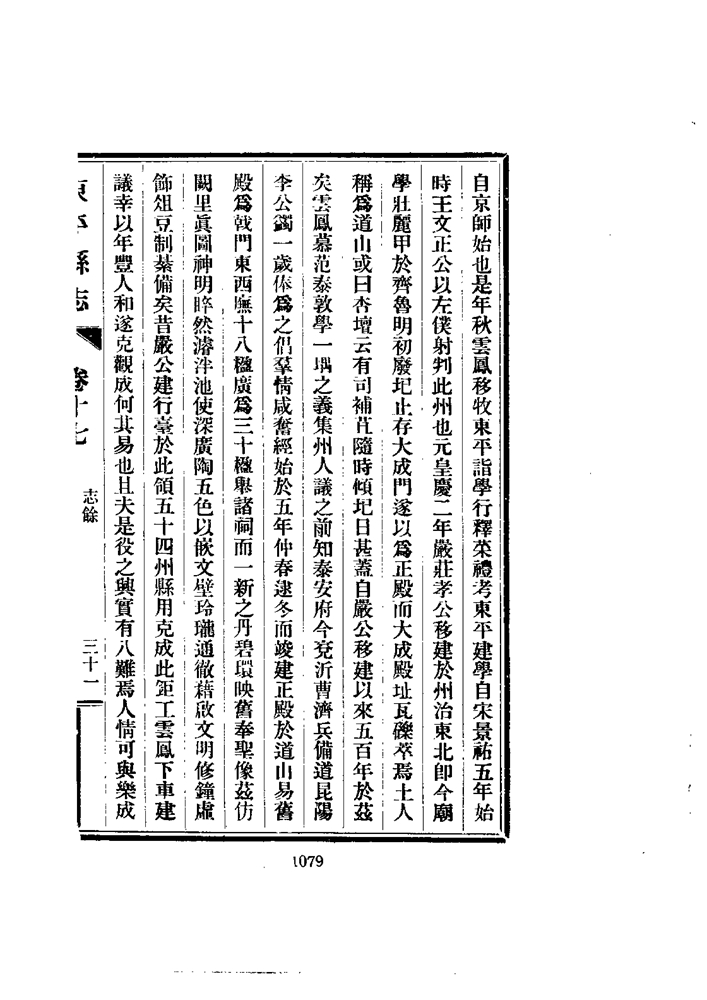 自京師始也是年秋雲鳳移牧東平詣學行釋菜禮考東平建學自宋景祐五年始
時王文正公以左僕射判此州也元皇慶二年嚴莊孝公移建於州治東北卽今廟
學壯麗甲於齊魯明初廢圮止存大成門遂以爲正殿而大成殿址瓦礫萃焉土人
稱爲道山或曰杏壇云有司補苴隨時傾圮日甚蓋自嚴公移建以來五百年於茲
矣雲鳳慕范泰敦學一堣之義集州人議之前知泰安府今兗沂曹濟兵備道昆陽
李公蠲一歲俸爲之倡羣情咸奮經始於五年仲春逮冬而竣建正殿於道山易舊
殿爲戟門東西廡十八楹廣爲三十楹舉諸祠而一新之丹碧環映舊奉聖像茲仿
闕里眞圖神明睟然濬泮池使深廣陶五色以嵌文壁玲瓏通徹藉啟文明修鐘虡
飾俎豆制綦備矣昔嚴公建行臺於此領五十四州縣用克成此鉅工雲鳳下車建
議幸以年豐人和遂克觀成何其易也且夫是役之興實有八難焉人情可與樂成
東平縣志 卷十七 志餘 三十一
1079